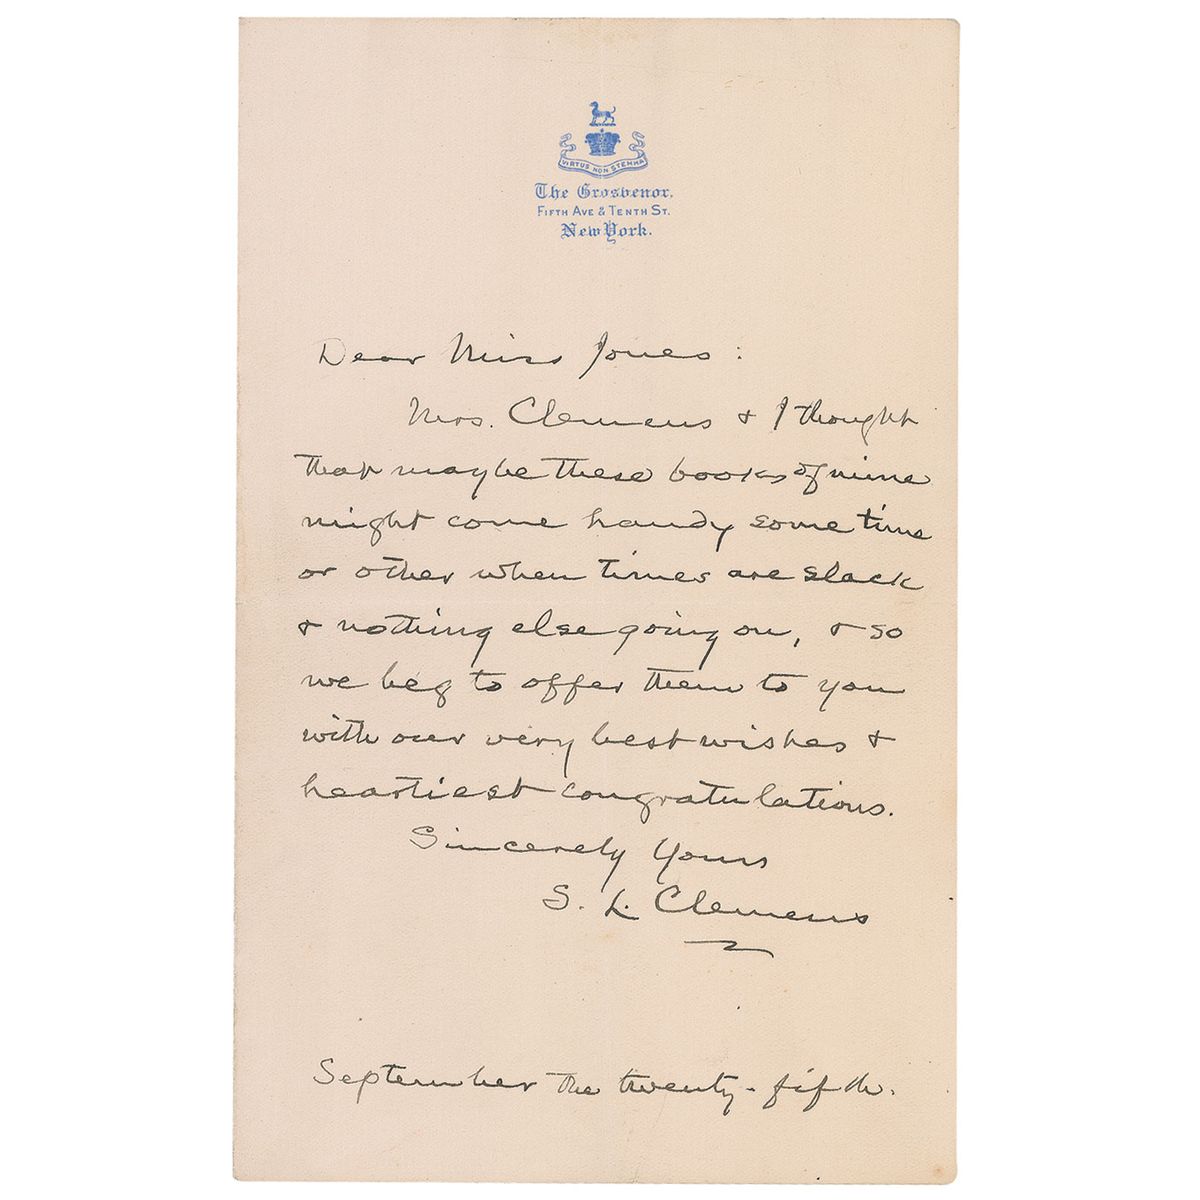 VIRTUS NON STEMMA
The Grosvenor.
FIFTH AVE & TENTH ST.
New York.
Dear Miss Jones:
Mrs. Clemens & I thought
that maybe these books of mine
might come handy some time
or other when times are slack
& nothing else going on, & so
we beg to offer them to you
with our very best wishes &
heartiest congratulations.
Sincerely Yours
S. L. Clemens
September the twenty-fifth.